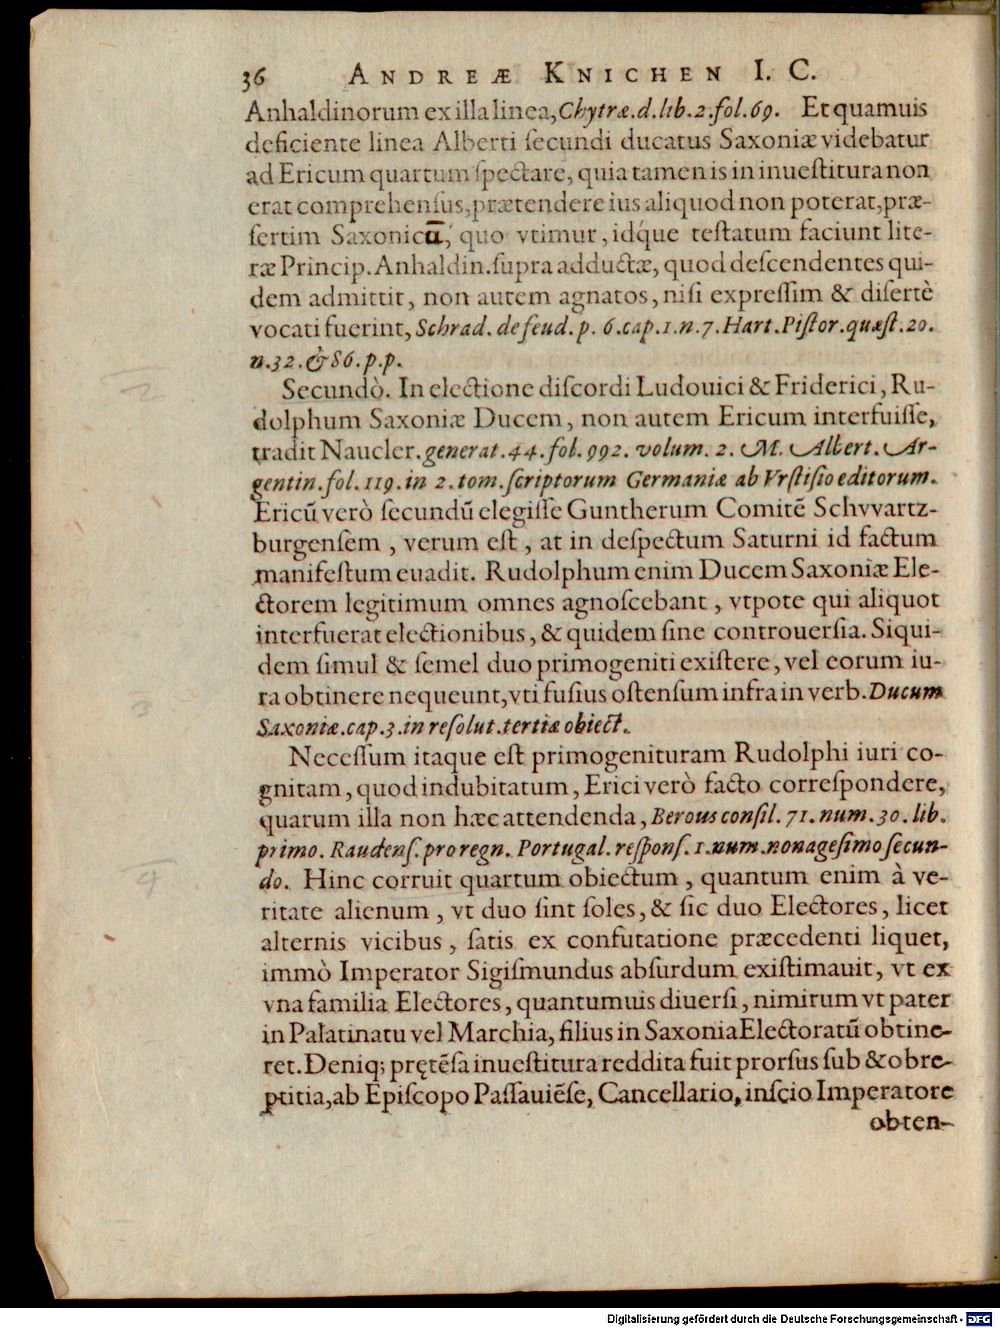 36 ANDREÆ KNICHEN I. C.
Anhaldinorum ex illa linea, Chytræ. d. lib. 2. fol. 69. Et quamuis
deficiente linea Alberti ſecundi ducatus Saxoniæ videbatur
ad Ericum quartum ſpectare, quia tamen is in inueſtitura non
erat comprehenſus, prætendere ius aliquod non poterat, præ-
ſertim Saxonicū, quo vtimur, idq́ue teſtatum faciunt lite-
ræ Princip. Anhaldin. ſupra adductæ, quod deſcendentes qui-
dem admittit, non autem agnatos, niſi expreſſim & diſertè
vocati fuerint, Schrad. de feud. p. 6. cap. 1. n. 7. Hart. Piſtor. quæſt. 20.
n. 32. & 86. p. p.
Secundò. In electione diſcordi Ludouici & Friderici, Ru-
dolphum Saxoniæ Ducem, non autem Ericum interfuiſſe,
tradit Naucler. generat. 44. fol. 992. volum. 2. M. Albert. Ar-
gentin. fol. 119. in 2. tom. ſcriptorum Germaniæ ab Vrſtiſio editorum.
Ericū verò ſecundū elegiſſe Guntherum Comitē Schvvartz-
burgenſem, verum eſt, at in deſpectum Saturni id factum
manifeſtum euadit. Rudolphum enim Ducem Saxoniæ Ele-
ctorem legitimum omnes agnoſcebant, vtpote qui aliquot
interfuerat electionibus, & quidem ſine controuerſia. Siqui-
dem ſimul & ſemel duo primogeniti exiſtere, vel eorum iu-
ra obtinere nequeunt, vti fuſius oſtenſum infra in verb. Ducum
Saxoniæ. cap. 3. in reſolut. tertiæ obiect.
Neceſſum itaque eſt primogenituram Rudolphi iuri co-
gnitam, quod indubitatum, Erici verò facto correſpondere,
quarum illa non hæc attendenda, Berous conſil. 71. num. 30. lib.
primo. Raudenſ. pro regn. Portugal. reſponſ. 1. num. nonageſimo ſecun-
do. Hinc corruit quartum obiectum, quantum enim à ve-
ritate alienum, vt duo ſint ſoles, & ſic duo Electores, licet
alternis vicibus, ſatis ex confutatione præcedenti liquet,
immò Imperator Sigiſmundus abſurdum exiſtimauit, vt ex
vna familia Electores, quantumuis diuerſi, nimirum vt pater
in Palatinatu vel Marchia, filius in Saxonia Electoratū obtine-
ret. Deniq; prętēſa inueſtitura reddita fuit prorſus ſub & obre-
ptitia, ab Epiſcopo Paſſauiēſe, Cancellario, inſcio Imperatore
obten-
Digitalisierung gefördert durch die Deutsche Forschungsgemeinschaft - DFG